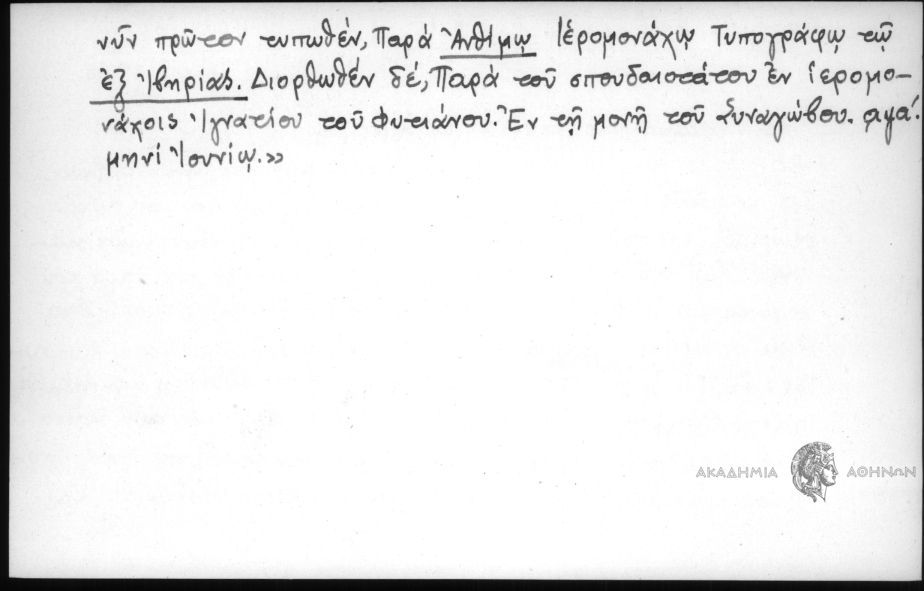 νῦν πρῶτον τυπωθέν, Παρά Ἀνθίμῳ Ἱερομονάχῳ Τυπογράφῳ τῷ
ἐξ Ἰβηρίας. Διορθωθέν δέ, Παρά τοῦ σπουδαιοτάτου ἐν ἱερομο-
νάχοις Ἰγνατίου τοῦ Φυτιάνου. Ἐν τῇ μονῇ τοῦ Συναγώβου. αψα.
μηνί Ἰουνίῳ.»
ΑΚΑΔΗΜΙΑ ΑΘΗΝΩΝ